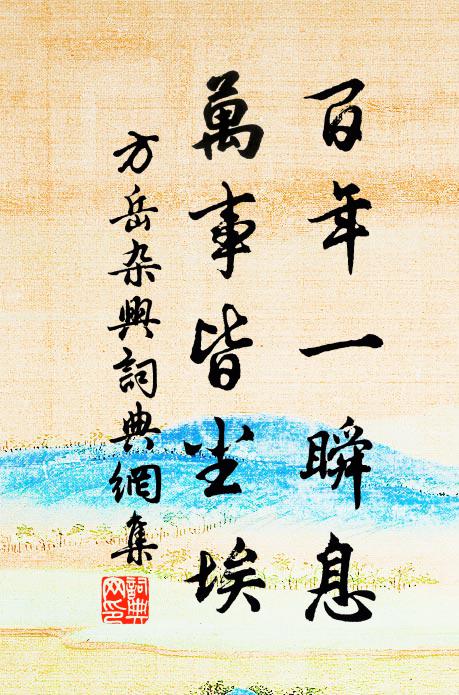 百年一瞬息
萬事皆尘埃
方岳杂興詞典網集
詞典